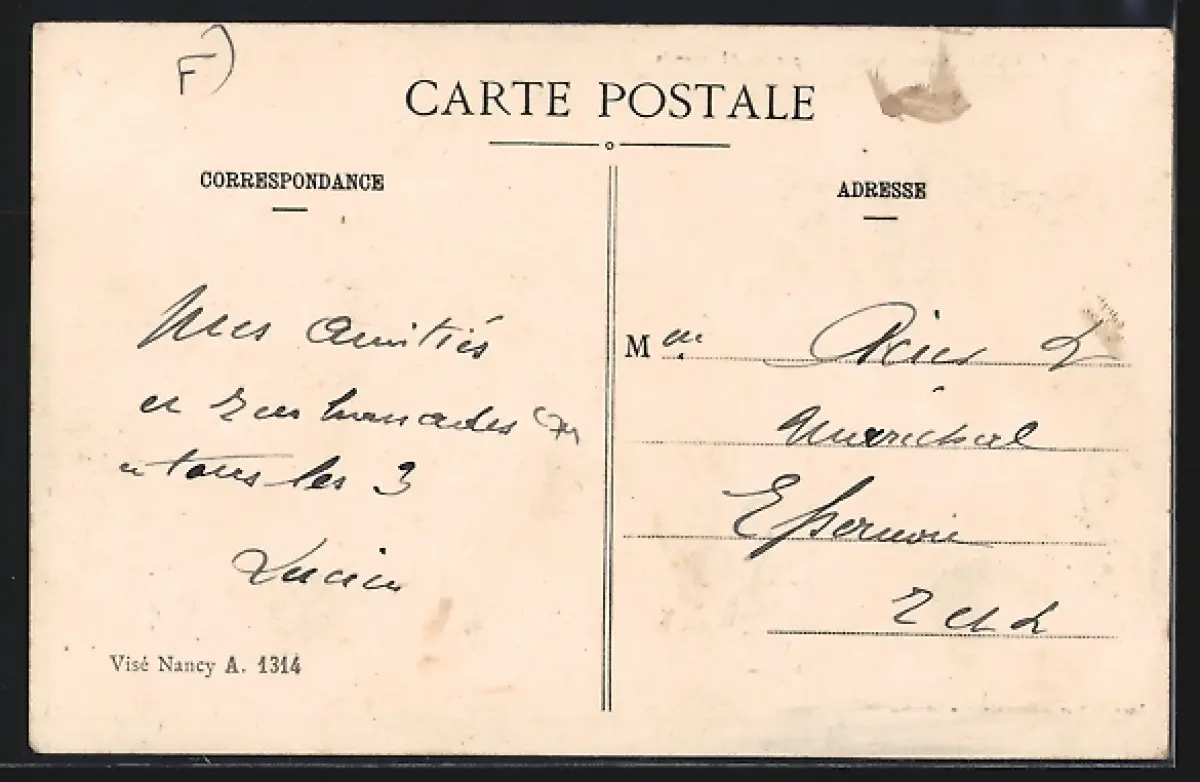 F)
CARTE POSTALE
CORRESPONDANCE
ADRESSE
Mes amitiés
et embrassades
a tous les 3
Lucien
Visé Nancy A. 1314
M
Maréchal
Epernon
E et L